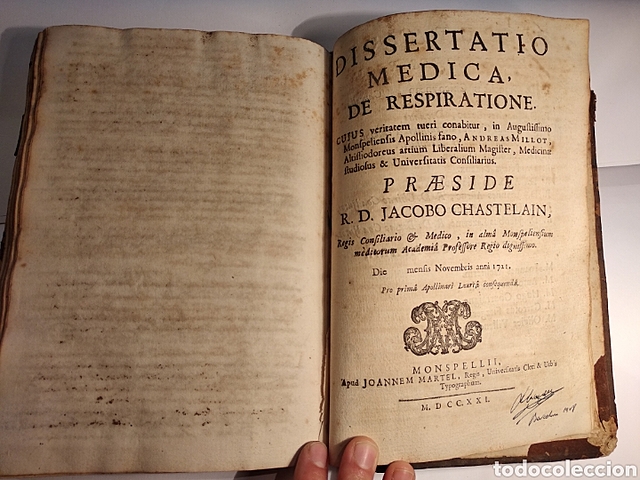 DISSERTATIO
MEDICA,
DE RESPIRATIONE.
CUJUS veritatem tueri conabitur, in Augustissimo
Monspeliensis Apollinis fano, ANDREAS MILLOT,
Altissiodoreus artium Liberalium Magister, Medicinæ
studiosus & Universitatis Consiliarius.
PRÆSIDE
R. D. JACOBO CHASTELAIN,
Regis Consiliario & Medico, in almâ Monspeliensium
medicorum Academiâ Professore Regio dignissimo.
Die mensis Novembris anni 1721.
Pro primâ Apollinari Laureâ consequendâ.
MONSPELII,
Apud JOANNEM MARTEL, Regis, Universitatis Cleri & Urbis
Typographum.
M. DCC. XXI.
Barcelona
todocoleccion